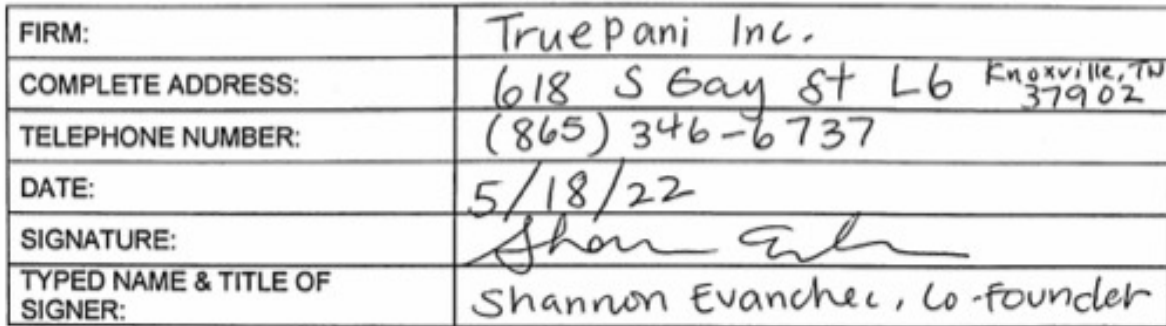 FIRM: TruePani Inc.
COMPLETE ADDRESS: 618 S Gay St L6 Knoxville, TN 37902
TELEPHONE NUMBER: (865) 346-6737
DATE: 5/18/22
SIGNATURE: Shan E
TYPED NAME & TITLE OF
SIGNER: Shannon Evanchec, Co-founder